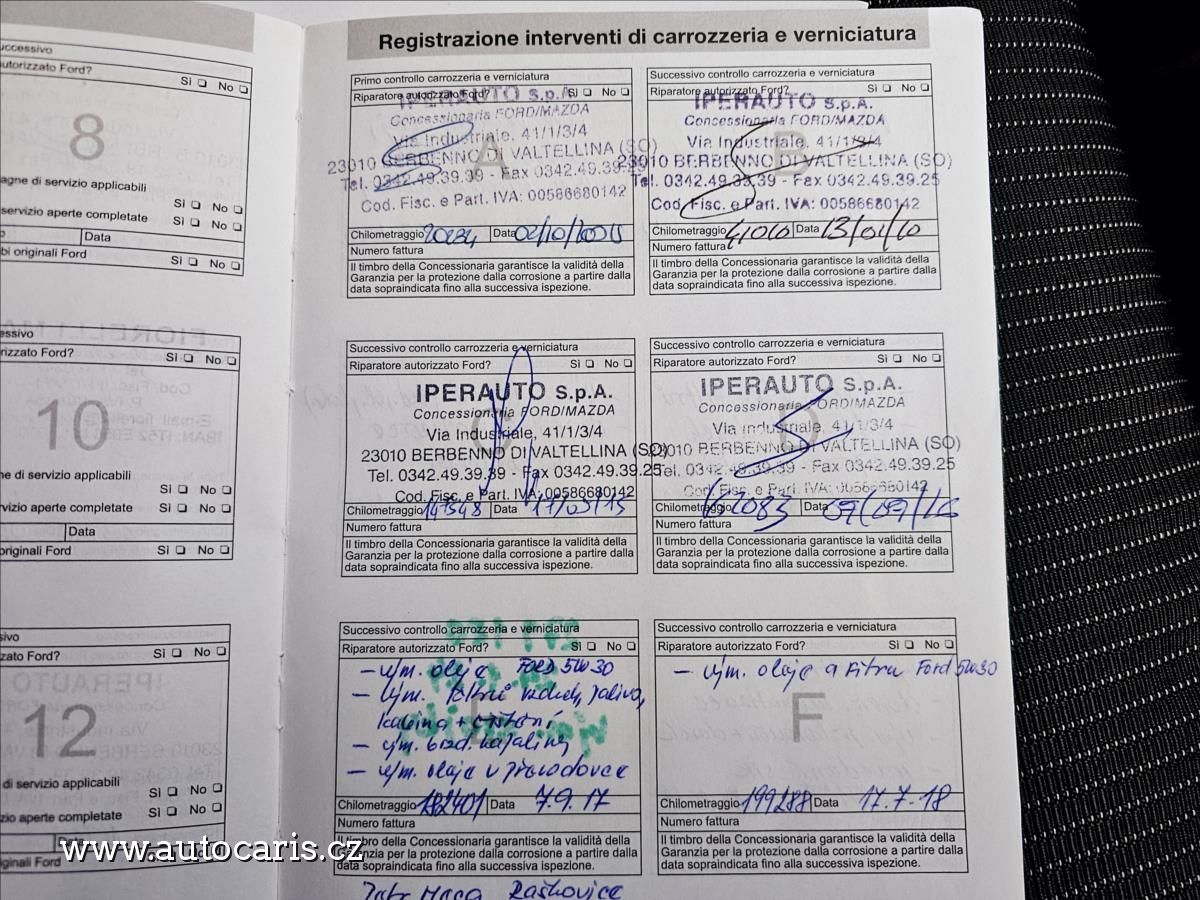 uccessivo
utorizzato Ford?
Sì ❏ No ❏
8
agne di servizio applicabili
Sì ❏ No ❏
servizio aperte completate
Sì ❏ No ❏
Data
bi originali Ford
Sì ❏ No ❏
essivo
rizzato Ford?
Sì ❏ No ❏
10
ne di servizio applicabili
Sì ❏ No ❏
vizio aperte completate
Sì ❏ No ❏
Data
originali Ford
Sì ❏ No ❏
sivo
zato Ford?
Sì ❏ No ❏
12
di servizio applicabili
Sì ❏ No ❏
zio aperte completate
Sì ❏ No ❏
Data
ginali Ford
Registrazione interventi di carrozzeria e verniciatura
Primo controllo carrozzeria e verniciatura
Riparatore autorizzato Ford? Sì ❏ No ❏
IPERAUTO S.p.A.
Concessionaria FORD/MAZDA
Via Industriale, 41/1/3/4
23010 BERBENNO DI VALTELLINA (SO)
Tel. 0342.49.39.39 - Fax 0342.49.39.25
Cod. Fisc. e Part. IVA: 00586680142
Chilometraggio Data
Numero fattura
Il timbro della Concessionaria garantisce la validità della
Garanzia per la protezione dalla corrosione a partire dalla
data sopraindicata fino alla successiva ispezione.
Successivo controllo carrozzeria e verniciatura
Riparatore autorizzato Ford? Sì ❏ No ❏
IPERAUTO S.p.A.
Concessionaria FORD/MAZDA
Via Industriale, 41/1/3/4
23010 BERBENNO DI VALTELLINA (SO)
Tel. 0342.49.39.39 - Fax 0342.49.39.25
Cod. Fisc. e Part. IVA: 00586680142
Chilometraggio Data
Numero fattura
Il timbro della Concessionaria garantisce la validità della
Garanzia per la protezione dalla corrosione a partire dalla
data sopraindicata fino alla successiva ispezione.
Successivo controllo carrozzeria e verniciatura
Riparatore autorizzato Ford? Sì ❏ No ❏
IPERAUTO S.p.A.
Concessionaria FORD/MAZDA
Via Industriale, 41/1/3/4
23010 BERBENNO DI VALTELLINA (SO)
Tel. 0342.49.39.39 - Fax 0342.49.39.25
Cod. Fisc. e Part. IVA: 00586680142
Chilometraggio 147548 Data 17/09/15
Numero fattura
Il timbro della Concessionaria garantisce la validità della
Garanzia per la protezione dalla corrosione a partire dalla
data sopraindicata fino alla successiva ispezione.
Successivo controllo carrozzeria e verniciatura
Riparatore autorizzato Ford? Sì ❏ No ❏
IPERAUTO S.p.A.
Concessionaria FORD/MAZDA
Via Industriale, 41/1/3/4
23010 BERBENNO DI VALTELLINA (SO)
Tel. 0342.49.39.39 - Fax 0342.49.39.25
Cod. Fisc. e Part. IVA: 00586680142
Chilometraggio Data
Numero fattura
Il timbro della Concessionaria garantisce la validità della
Garanzia per la protezione dalla corrosione a partire dalla
data sopraindicata fino alla successiva ispezione.
Successivo controllo carrozzeria e verniciatura
Riparatore autorizzato Ford? Sì ❏ No ❏
– vým. oleje FORD 5W30
– vým. filtrů vzduch, paliva,
kabina + čištění
– vým. brzd. kapaliny
– vým. oleje v převodovce
Chilometraggio 182401 Data 7.9.17
Numero fattura
Il timbro della Concessionaria garantisce la validità della
Garanzia per la protezione dalla corrosione a partire dalla
data sopraindicata fino alla successiva ispezione.
Raškovice
Successivo controllo carrozzeria e verniciatura
Riparatore autorizzato Ford? Sì ❏ No ❏
– vým. oleje a filtru Ford 5W30
F
Chilometraggio 199288 Data 17.7.18
Numero fattura
Il timbro della Concessionaria garantisce la validità della
Garanzia per la protezione dalla corrosione a partire dalla
data sopraindicata fino alla successiva ispezione.
www.autocaris.cz